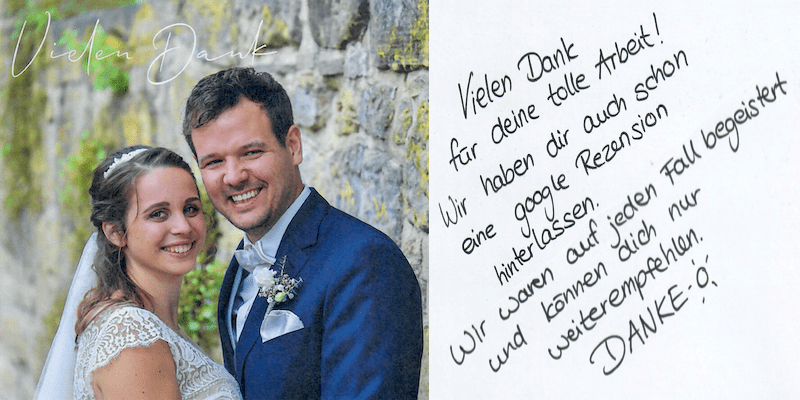 Vielen Dank
Vielen Dank
für deine tolle Arbeit!
Wir haben dir auch schon
eine google Rezension
hinterlassen.
Wir waren auf jeden Fall begeistert
und können dich nur
weiterempfehlen.
DANKE